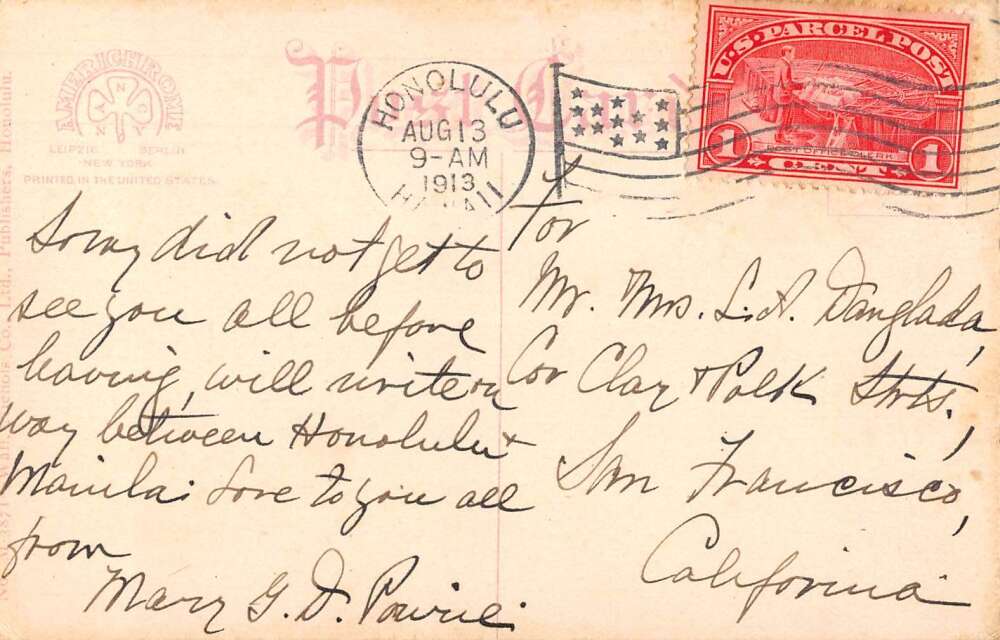 AMERICHROM
ANNO
LEIPZIG BERLIN
NEW YORK
PRINTED IN THE UNITED STATES
Post Card
HONOLULU
AUG 13
9-AM
1913
HAWAII
U.S. PARCEL POST
POST OFFICE CLERK
1 CENT 1
Ltd., Publishers, Honolulu.
Sorry did not get to
see you all before
leaving, will write on
way between Honolulu +
Manila. Love to you all
from
Mary G. D.
For
Mr. Mrs. L. A. Danglada,
Cor Clay & Polk Strts.,
San Francisco,
California.